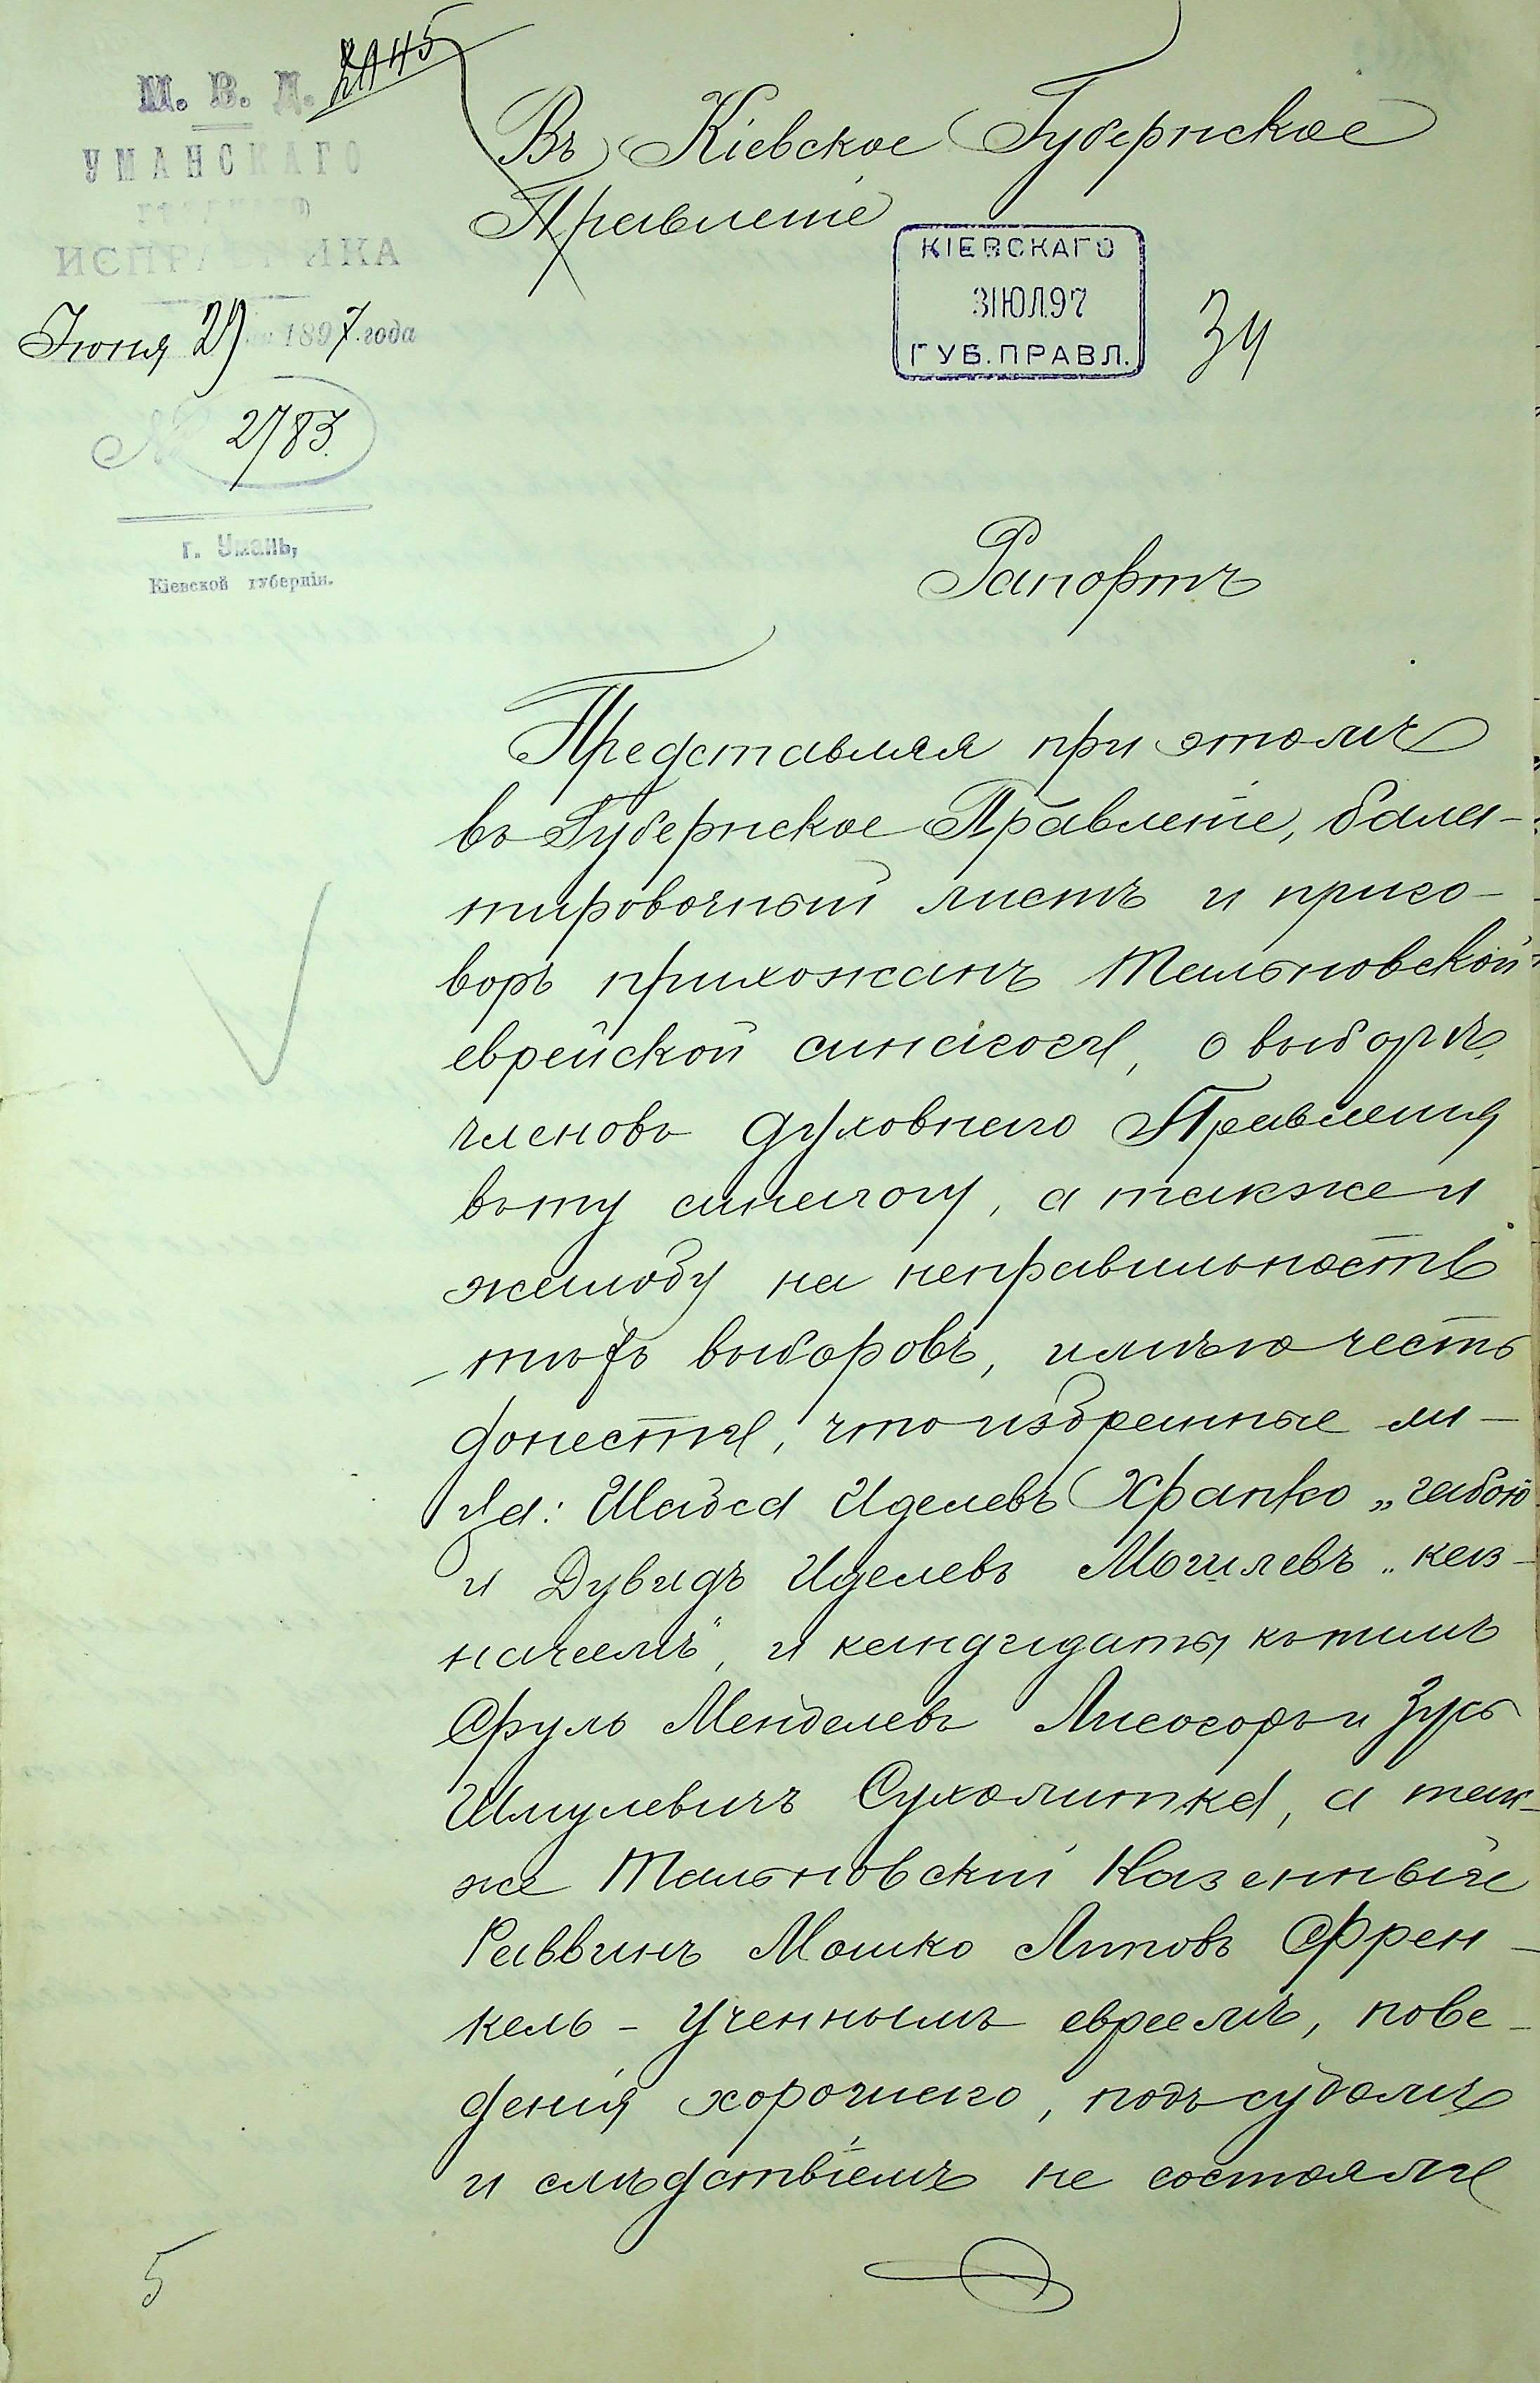 М. В. Д.
УМАНСКАГО
ИСПРАВНИКА
Июня 29 1897 года
№ 2783.
г. Умань,
Кіевской губерніи.
Въ Кіевское Губернское
Правленіе
КІЕВСКАГО
31ЮЛ97
ГУБ.ПРАВЛ.
34
Рапортъ
Представляя при этомъ
въ Губернское Правленіе, балло-
тировочный листъ и приго-
воръ прихожанъ Тальновской
еврейской синагоги, о выборѣ
членовъ духовнаго Правленія
въ ту синагогу, а также и
жалобу на неправильность
тѣхъ выборовъ, имѣю честь
донести, что избранные ли-
ца: Шабса Иделевъ Храпко „габою
и Дувидъ Иделевъ Могилевъ „каз-
начеемъ", и кандидаты къ нимъ
Сруль Менделевъ Лисогоръ и Зусь
Шмулевичъ Сухолитка, а так-
же Тальновскій Казенный
Раввинъ Мошко Липовъ Френ-
кель - Ученнымъ евреемъ, пове-
денія хорошаго, подъ судомъ
и слѣдствіемъ не состояли
5